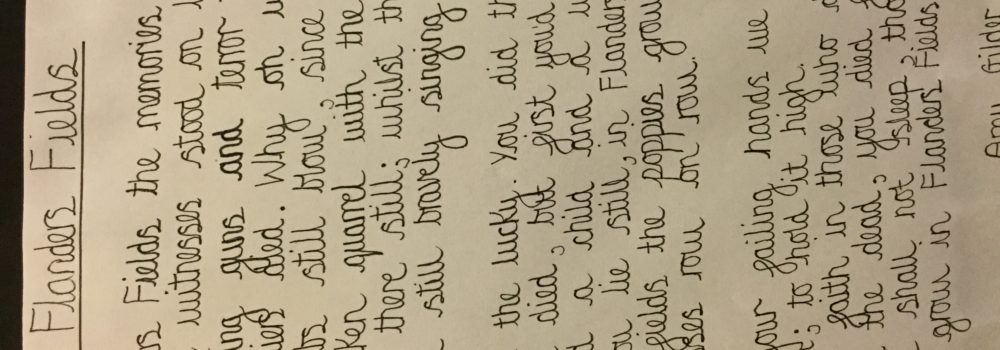 Flanders Fields
Fields the memories
witnesses stood on
guns and terror
died. Why oh
still blow, since
quarrel with the
there still; whilst
still bravely singing
the lucky. You did
died, but first you'd
a child and a
lie still, in
fields the poppies grow
row on row.
your failing hands we
; to hold it high.
faith in those who
the dead, you died
shall not sleep,
grow in Flanders Fields.
Amy Gilder